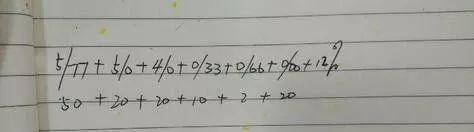 5/77 + 5/0 + 4/0 + 0/33 + 0/66 + 0/00 + 12%
50 + 20 + 20 + 10 + 2 + 20